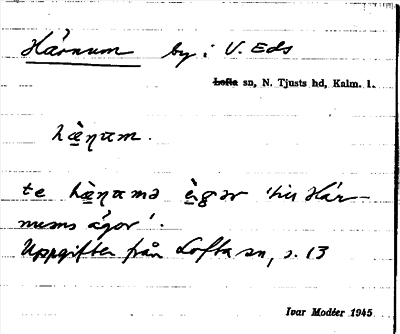 Hårnum by i V. Eds
Lofta sn, N. Tjusts hd, Kalm. l.
hæ̀ɳɑm.
te hæ̀ɳɑmə è̀gər 'till Hår-
nums ägor'.
Uppgifter från Lofta sn, s. 13
Ivar Modéer 1945